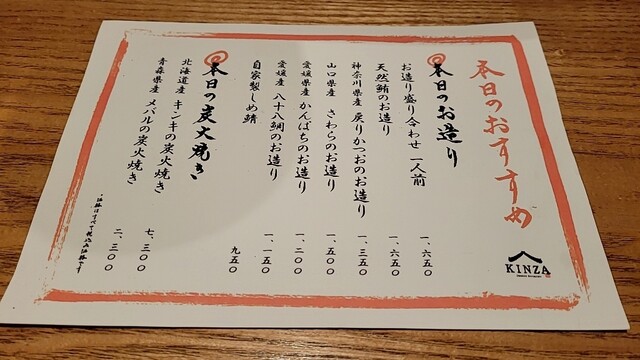 本日のおすすめ
本日のお造り
お造り盛り合わせ 一人前 一、六五〇
天然鮪のお造り 一、六五〇
神奈川県産 戻りかつおのお造り 一、三五〇
山口県産 さわらのお造り 一、五〇〇
愛媛県産 かんぱちのお造り 一、二〇〇
愛媛産 八十八鯛のお造り 一、一五〇
自家製しめ鯖 九五〇
本日の炭火焼き
北海道産 キンキの炭火焼き 七、三〇〇
青森県産 メバルの炭火焼き 二、三〇〇
・価格はすべて税込み価格です
KINZA